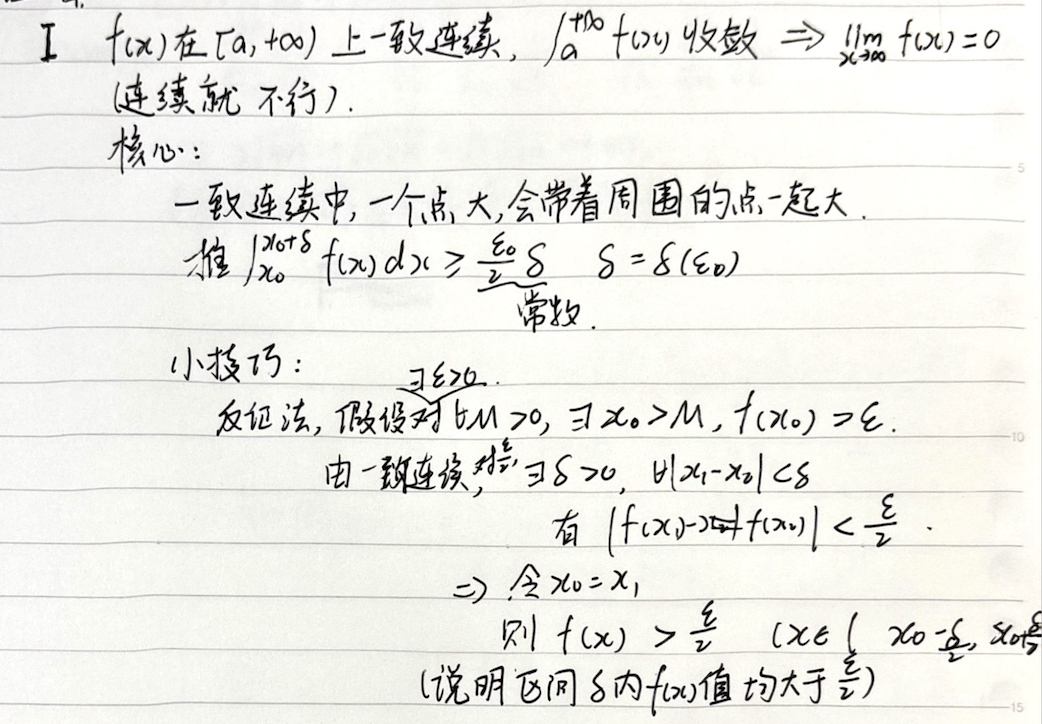 I f(x)在[a,+∞)上一致连续, ∫_a^{+∞} f(x) 收敛 ⇒ lim_{x→∞} f(x)=0
(连续就不行).
核心:
一致连续中,一个点大,会带着周围的点一起大.
推 ∫_{x₀}^{x₀+δ} f(x)dx ≥ ε₀/2 δ δ=δ(ε₀)
常数.
小技巧:
∃ε>0.
反证法,假设对∀M>0, ∃x₀>M, f(x₀)>ε.
由一致连续,对ε/2, ∃δ>0, ∀|x₁-x₂|<δ
有 |f(x₁)-f(x₂)|<ε/2.
⇒ 令x₀=x₁
则 f(x)>ε/2 (x∈( x₀-δ/2, x₀+δ/2
(说明区间δ内f(x)值均大于ε/2)
5
10
15